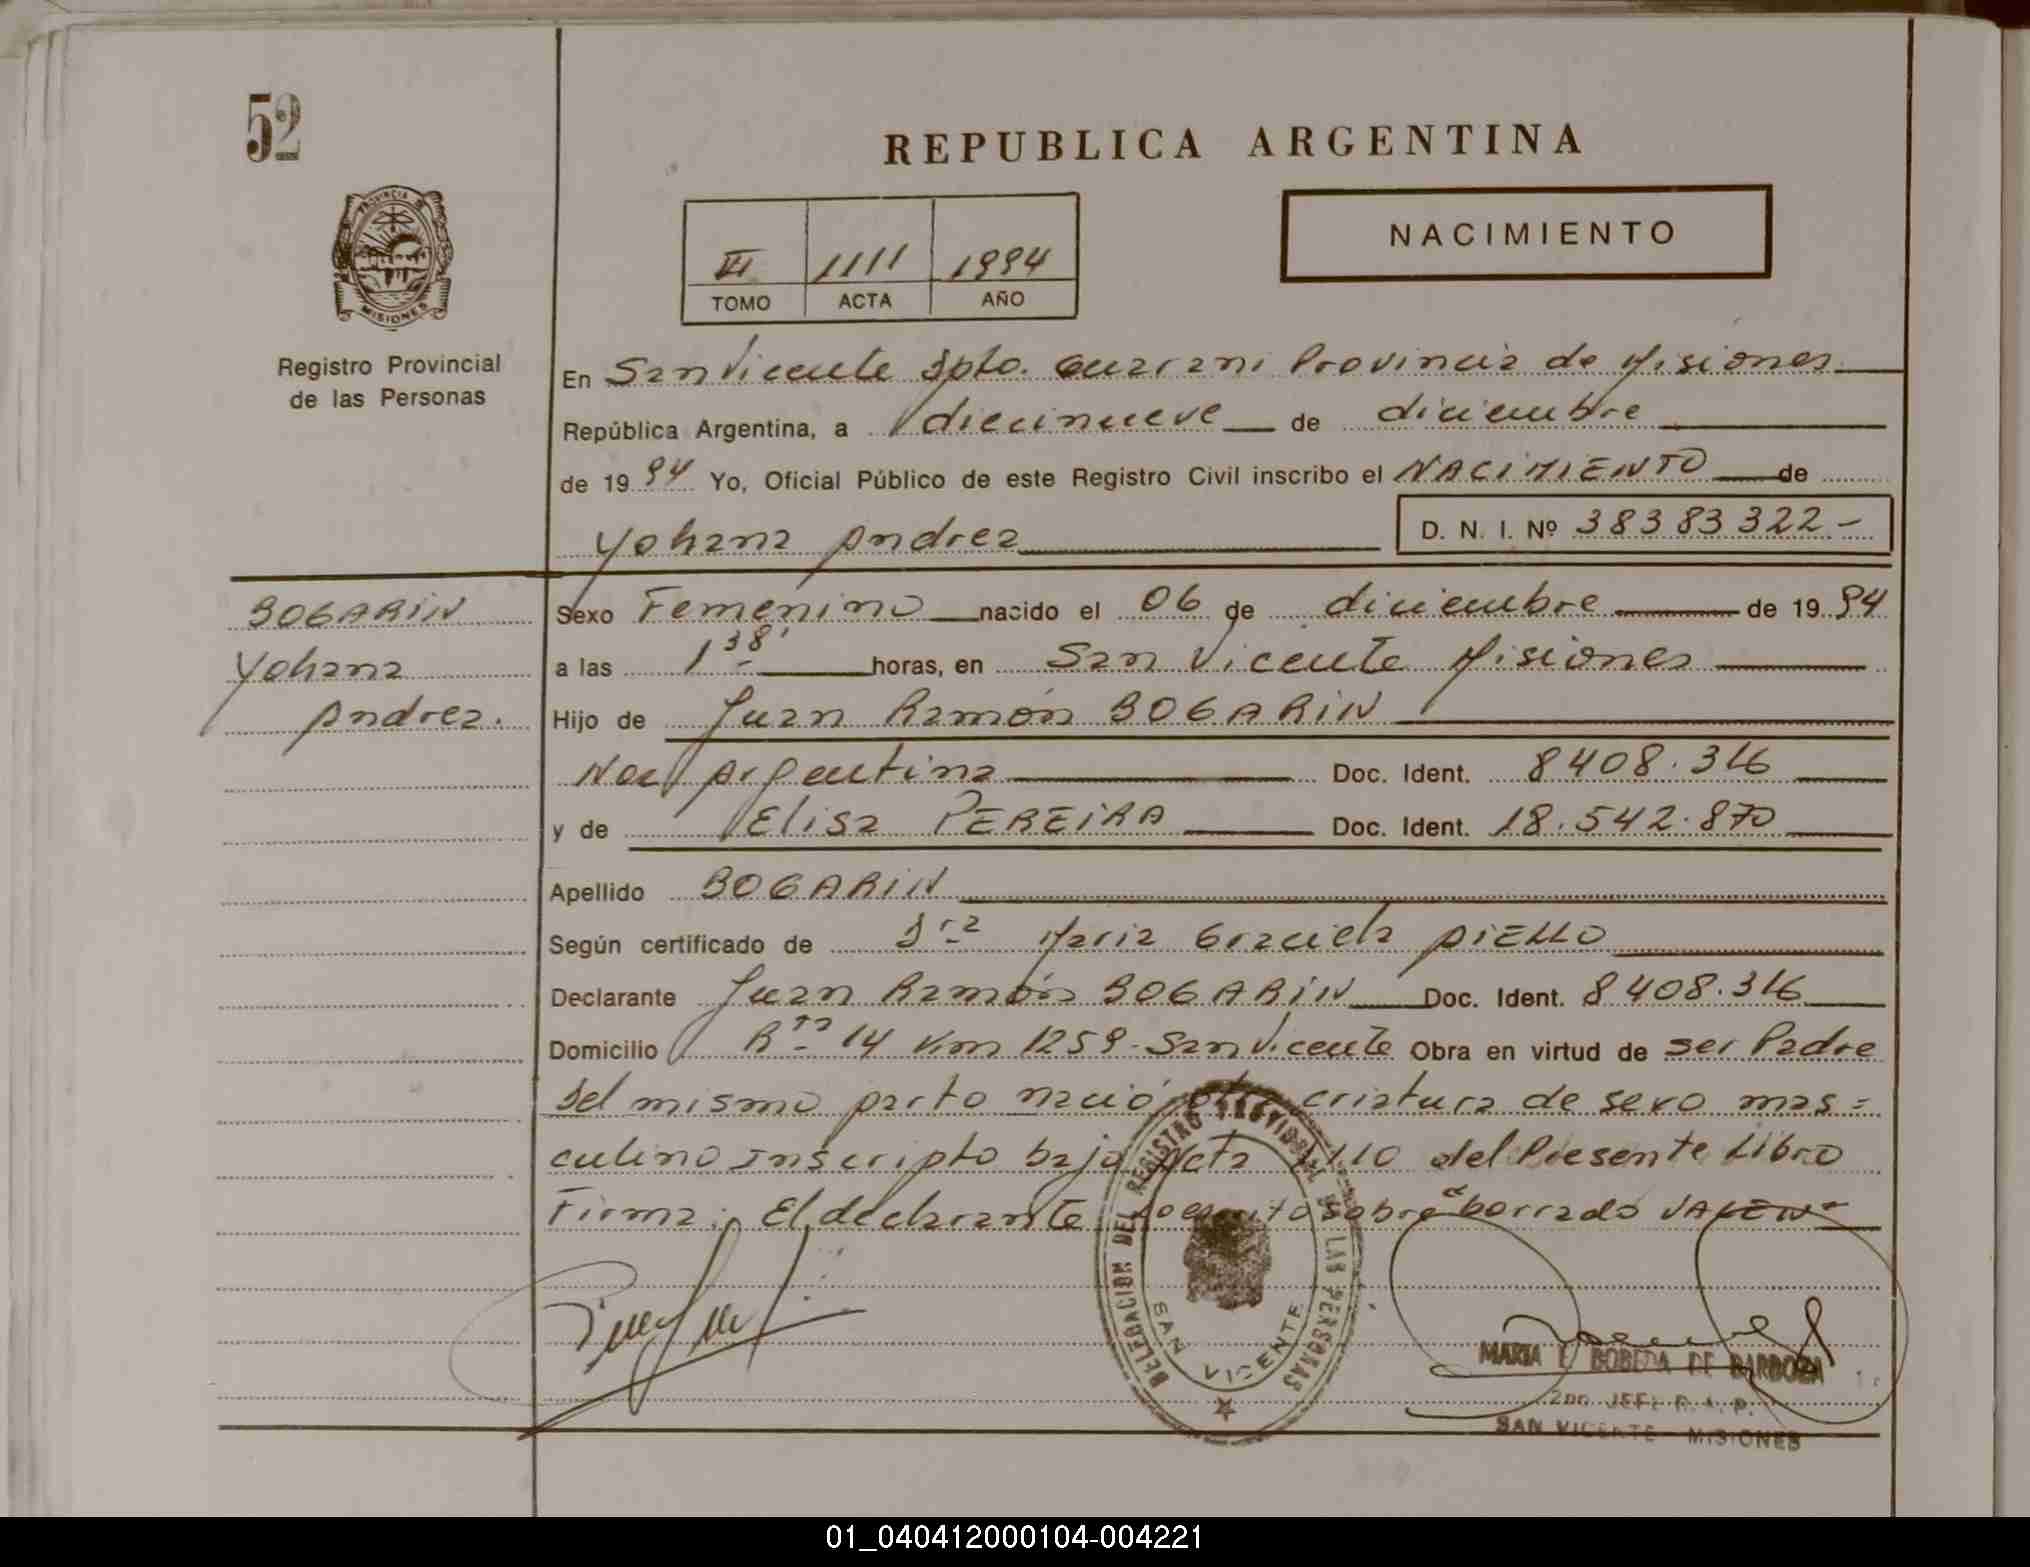 52
REPUBLICA ARGENTINA
PROVINCIA DE
MISIONES
Registro Provincial
de las Personas
III 1111 1994
TOMO ACTA AÑO
NACIMIENTO
En San Vicente Dpto. Guarani Provincia de Misiones
República Argentina, a diecinueve de diciembre
de 1994 Yo, Oficial Público de este Registro Civil inscribo el NACIMIENTO de
Yohana Andrea D. N. I. Nº 38383322-
BOGARIN
Yohana
Andrea.
Sexo Femenino nacido el 06 de diciembre de 1994
a las 1 38' horas, en San Vicente Misiones
Hijo de Juan Ramón BOGARIN
Nac Argentina Doc. Ident. 8408.316
y de Elisa PEREIRA Doc. Ident. 18.542.870
Apellido BOGARIN
Según certificado de Dra Maria Graciela AIELLO
Declarante Juan Ramón BOGARIN Doc. Ident. 8408.316
Domicilio Rta 14 Km 1259-San Vicente Obra en virtud de ser Padre
Del mismo parto nació otra criatura de sexo mas=
culino Inscripto bajo Acta 1110 del Presente Libro
Firma: El declarante Lo escrito sobre borrado VALEN-
DELEGACION DEL REGISTRO PROVINCIAL DE LAS PERSONAS
SAN VICENTE
MARIA E BOBEDA DE BARBOZA
2do. JEFE R. P.
SAN VICENTE - MISIONES
01_040412000104-004221